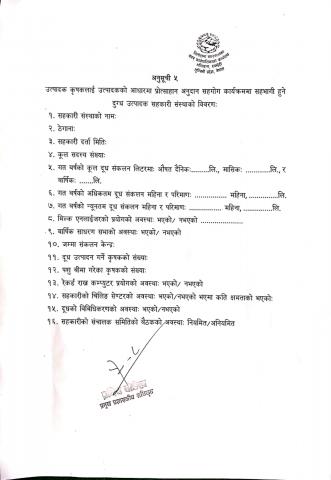 अनुसूची ५
उत्पादक कृषकलाई उत्पादकको आधारमा प्रोत्साहान अनुदान सहयोग कार्यक्रममा सहभागी हुने
दुग्ध उत्पादक सहकारी संस्थाको विवरणः
१. सहकारी संस्थाको नामः
२. ठेगानाः
३. सहकारी दर्ता मितिः
४. कूल सदस्य संख्याः
५. गत वर्षको कूल दूध संकलन लिटरमाः औषत दैनिकः........लि., मासिकः ............लि., र
वार्षिकः .......लि.
६. गत वर्षको अधिकतम दूध संकलन महिना र परिमाणः ................ महिना, ..............लि.
७. गत वर्षको न्यूनतम दूध संकलन महिना र परिमाणः ................ महिना, ................लि.
८. मिल्क एनलाईजरको प्रयोगको अवस्थाः भएको/ नभएको ....................
९. वार्षिक साधरण सभाको अवस्थाः भएको/ नभएको
१०. जम्मा संकलन केन्द्रः
११. दूध उत्पादन गर्ने कृषकको संख्याः
१२. पशु बीमा गरेका कृषकको संख्याः
१३. रेकर्ड राख्न कम्प्युटर प्रयोगको अवस्थाः भएको/ नभएको
१४. सहकारीको चिलिङ सेन्टरको अवस्थाः भएको/नभएको भएमा कति क्षमताको भएकोः
१५. दूधको बिबिधिकरणको अवस्थाः भएको/नभएको
१६. सहकारीको संचालक समितिको बैठकको अवस्थाः नियमित/अनियमित
प्रमुख प्रशासकीय अधिकृत